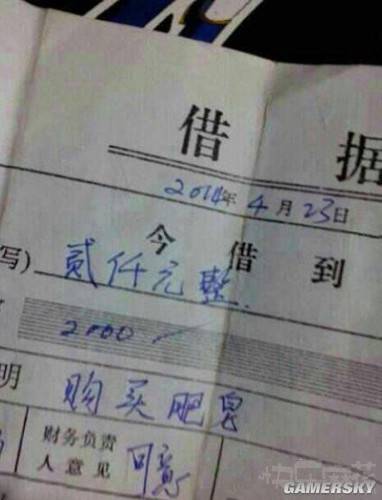 借据
2014年4月23日
今借到
写) 贰仟元整.
2000 —
明 购买肥皂
财务负责
人意见 同意
GAMERSKY